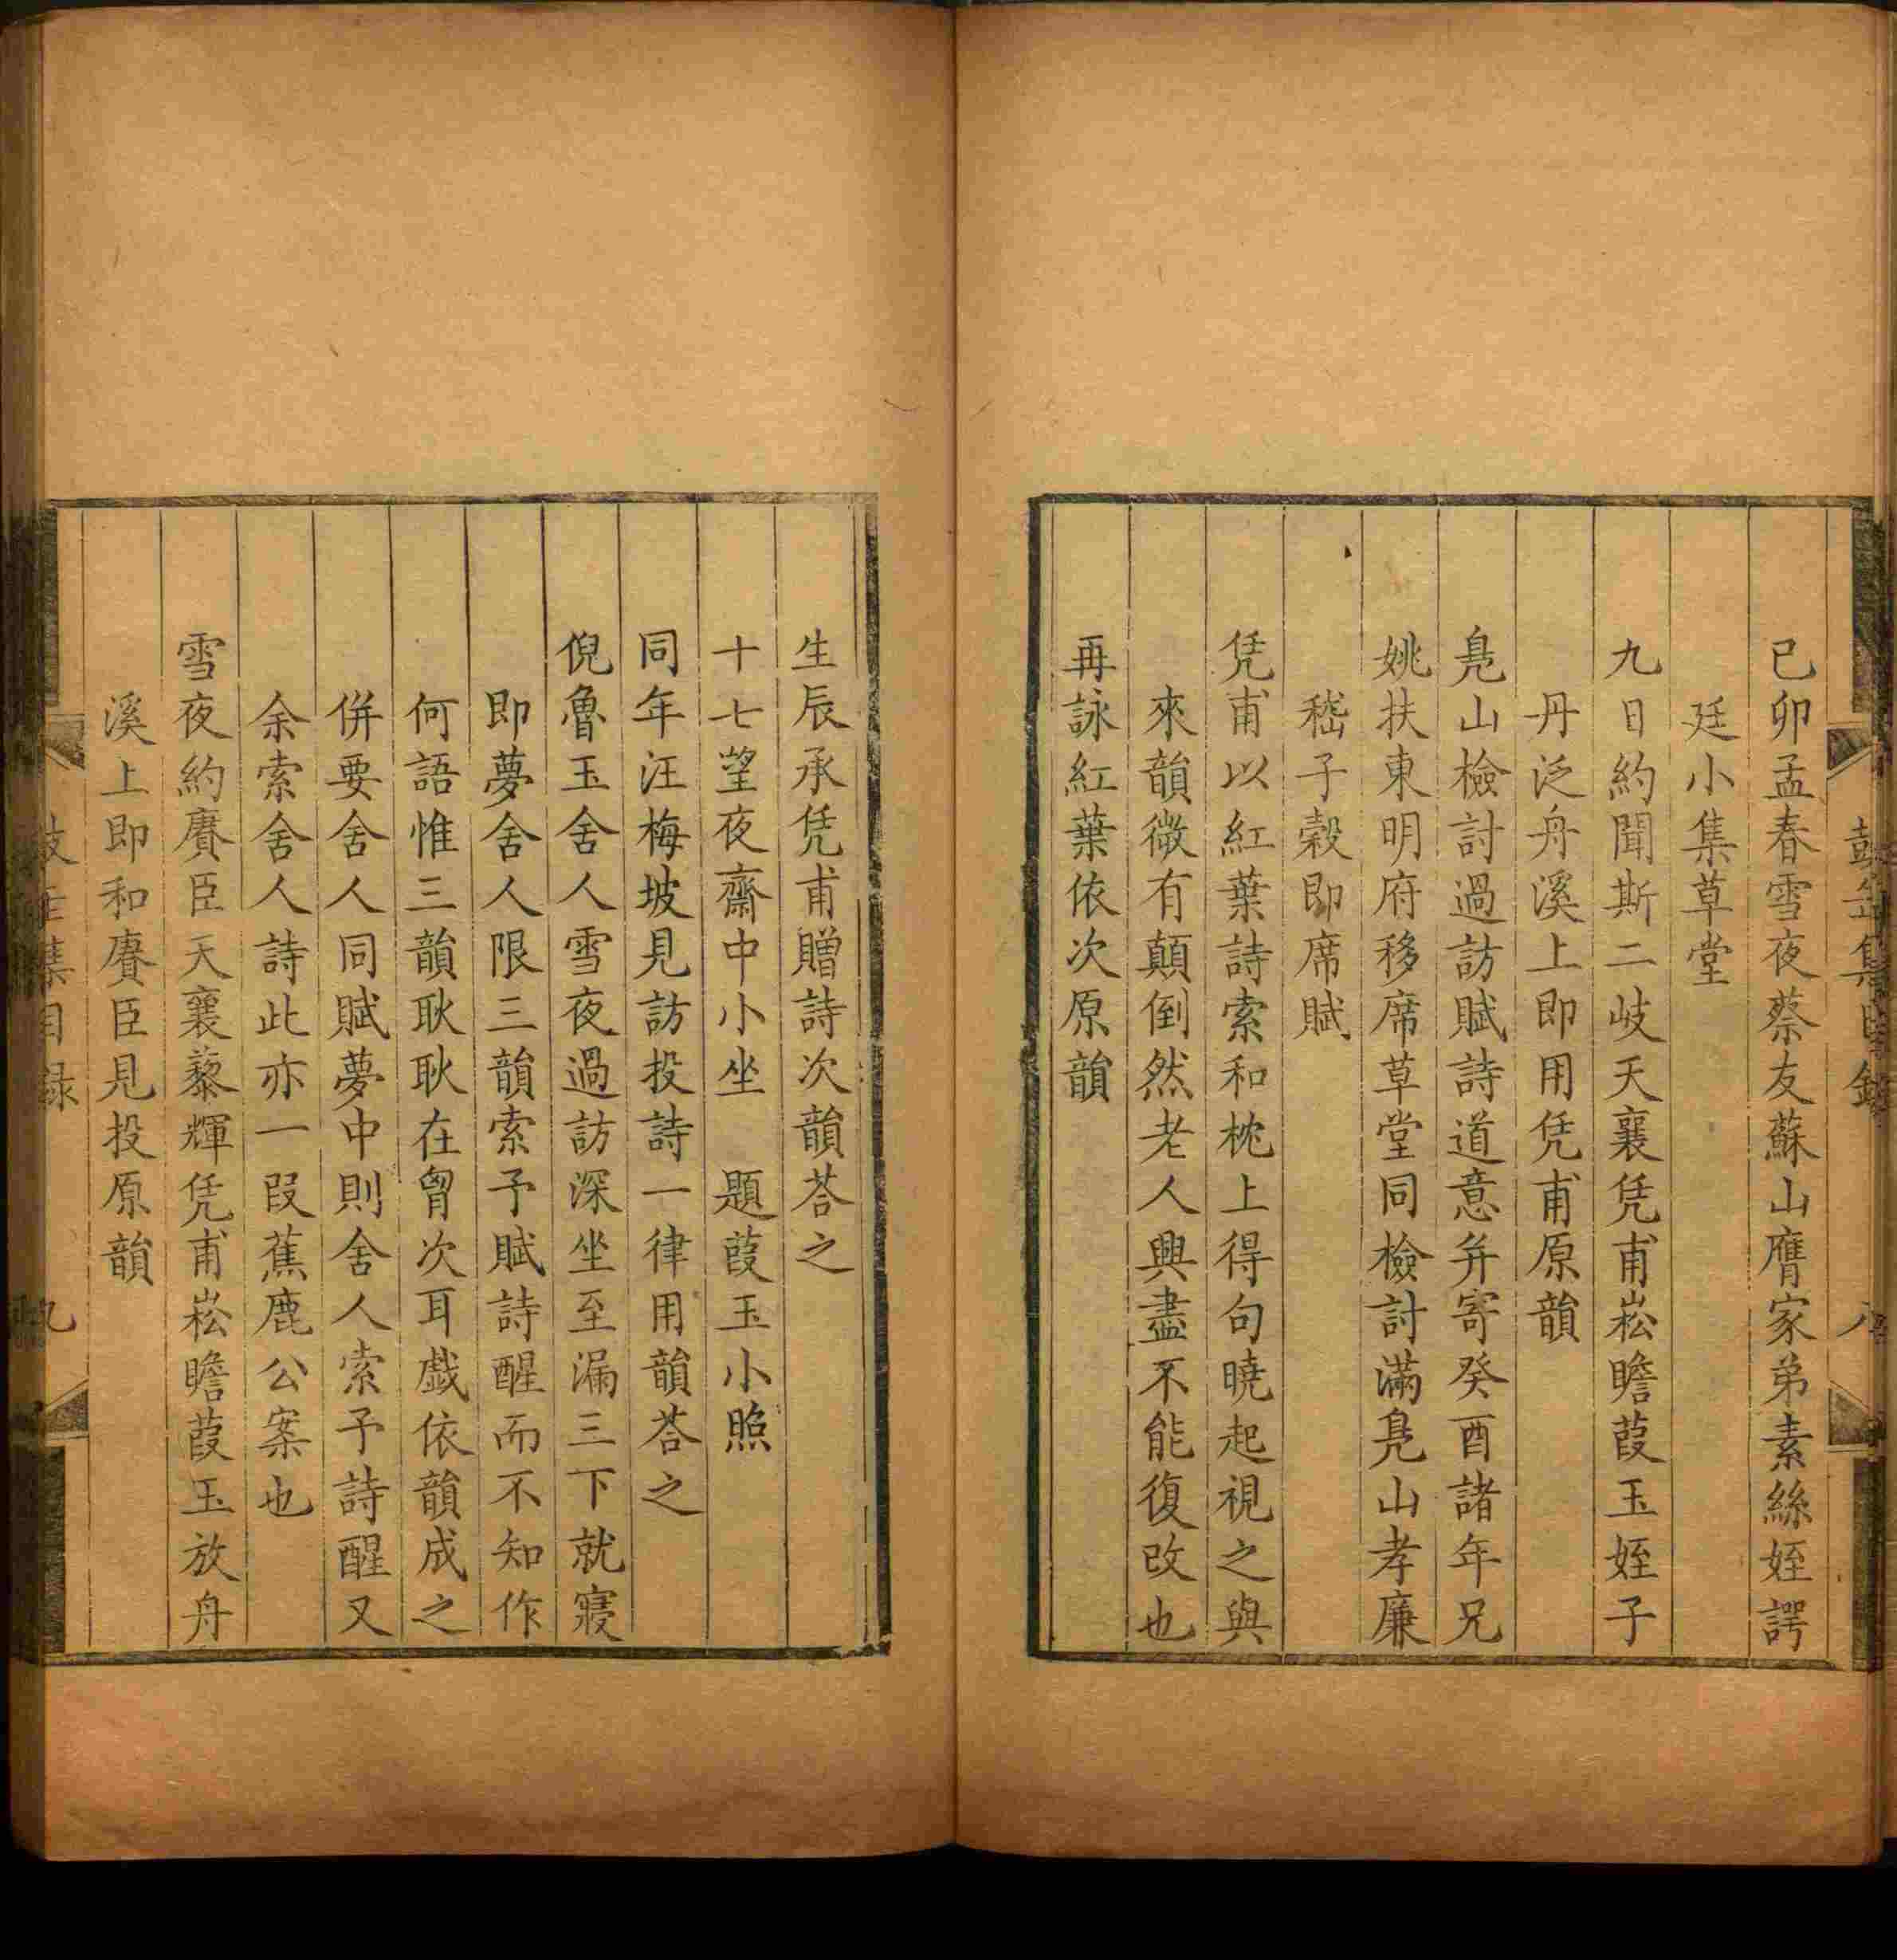 己卯孟春雪夜蔡友蘇山膺家弟素絲姪諤
廷小集草堂
九日約聞斯二岐天襄凭甫崧瞻葭玉姪子
丹泛舟溪上即用凭甫原韻
鳧山檢討過訪賦詩道意并寄癸酉諸年兄
姚扶東明府移席草堂同檢討滿鳧山孝廉
嵇子榖即席賦
凭甫以紅葉詩索和枕上得句曉起視之與
來韻微有顛倒然老人興盡不能復改也
再詠紅葉依次原韻
生辰承凭甫贈詩次韻荅之
十七望夜齋中小坐　題葭玉小照
同年汪梅坡見訪投詩一律用韻荅之
倪魯玉舍人雪夜過訪深坐至漏三下就寢
即夢舍人限三韻索予賦詩醒而不知作
何語惟三韻耿耿在胷次耳戯依韻成之
併要舍人同賦夢中則舍人索予詩醒又
余索舍人詩此亦一叚蕉鹿公案也
雪夜約賡臣天襄藜輝凭甫崧瞻葭玉放舟
溪上即和賡臣見投原韻
集目録
九